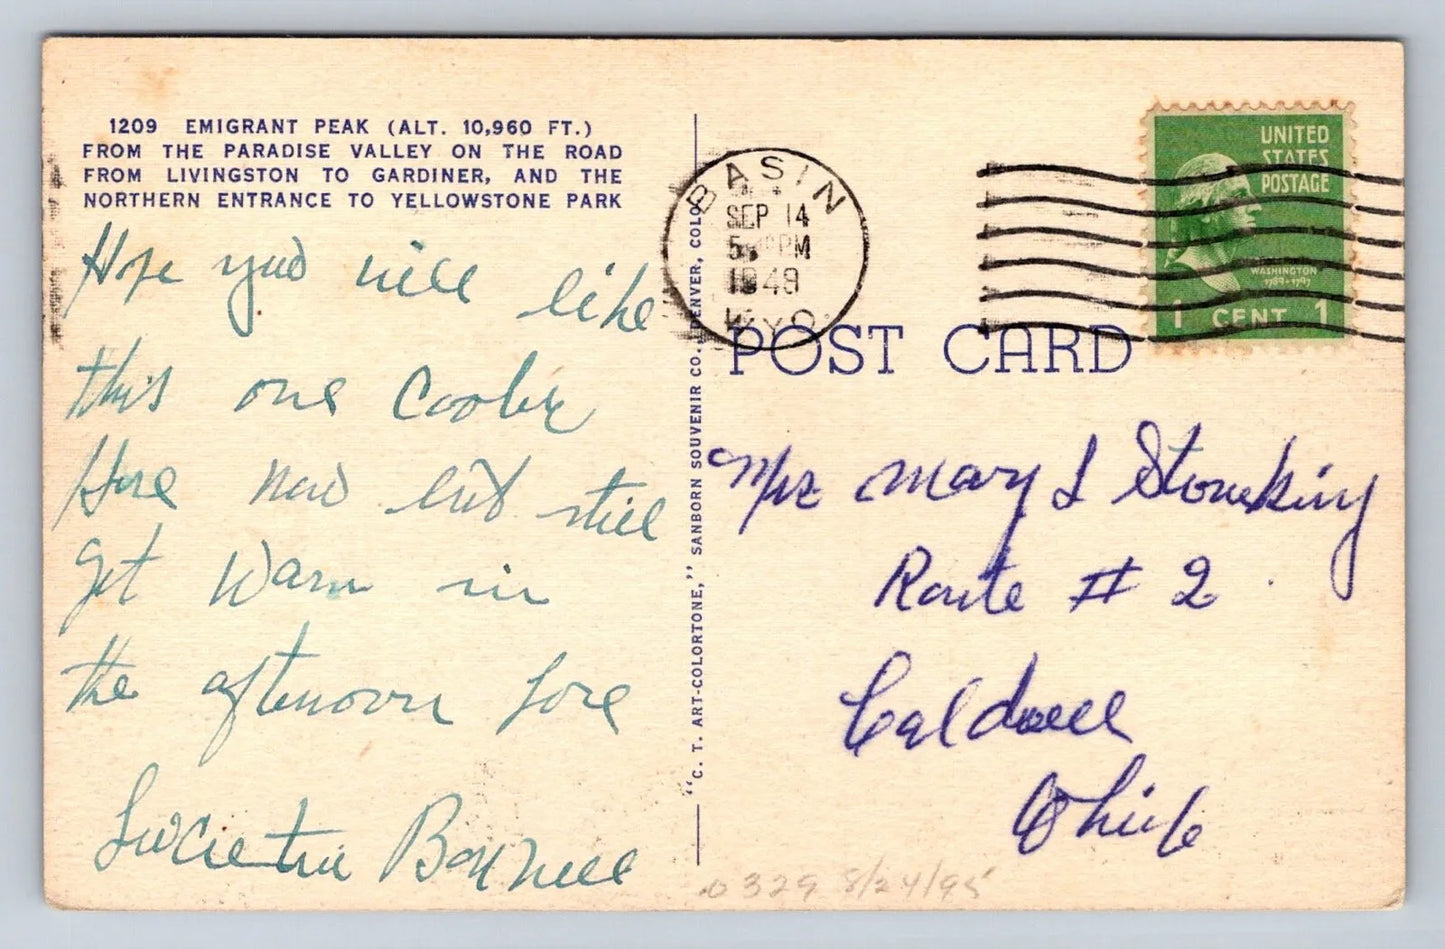 1209 EMIGRANT PEAK (ALT. 10,960 FT.)
FROM THE PARADISE VALLEY ON THE ROAD
FROM LIVINGSTON TO GARDINER, AND THE
NORTHERN ENTRANCE TO YELLOWSTONE PARK
Hope you will like
this one Cooler
Here now but still
get Warm in
the afternoon Love
Lucretia
"C. T. ART-COLORTONE," SANBORN SOUVENIR CO., DENVER, COLO.
BASIN
SEP 14
PM
WYO.
UNITED
STATES
POSTAGE
WASHINGTON
1789-1797
1 CENT 1
POST CARD
Mrs Mary L Stoneking
Route # 2
Caldwell
Ohio
0329 8/24/95